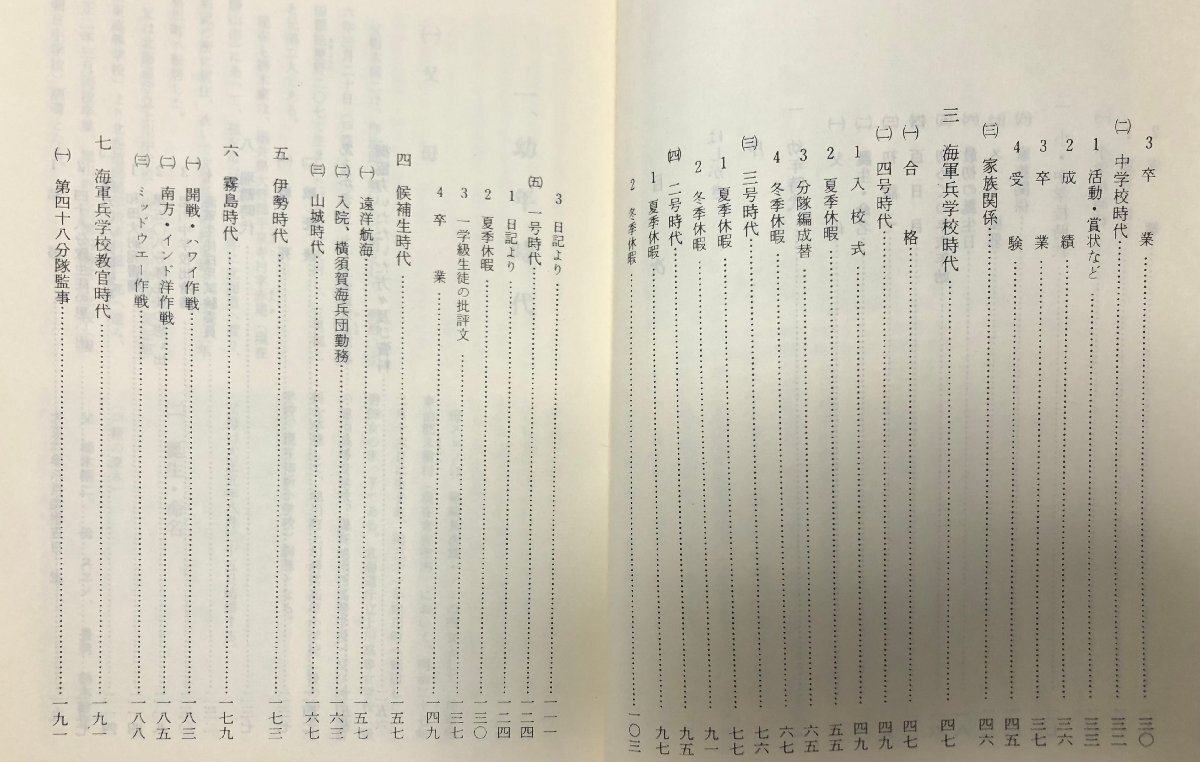 3 卒 業……三〇
㈡ 中学校時代……三二
1 活動・賞状など……三三
2 成 績……三六
3 卒 業……三七
4 受 験……四五
㈢ 家族関係……四六
三 海軍兵学校時代……四七
㈠ 合 格……四七
㈡ 四号時代……四九
1 入 校 式……四九
2 夏季休暇……五五
3 分隊編成替……六五
4 冬季休暇……六七
㈢ 三号時代……七六
1 夏季休暇……七七
2 冬季休暇……九一
㈣ 二号時代……九五
1 夏季休暇……九七
2 冬季休暇……一〇三
3 日記より……一一一
㈤ 一号時代……一二四
1 日記より……一二四
2 夏季休暇……一三〇
3 一学級生徒の批評文……一三七
4 卒 業……一四一
四 候補生時代……一五二
㈠ 遠洋航海……一五二
㈡ 入院、横須賀海兵団勤務……一六三
㈢ 山城時代……一六七
五 伊勢時代……一七三
六 霧島時代……一七九
㈠ 開戦・ハワイ作戦……一八三
㈡ 南方・インド洋作戦……一八五
㈢ ミッドウエー作戦……一八八
七 海軍兵学校教官時代……一九一
㈠ 第四十八分隊監事……一九一